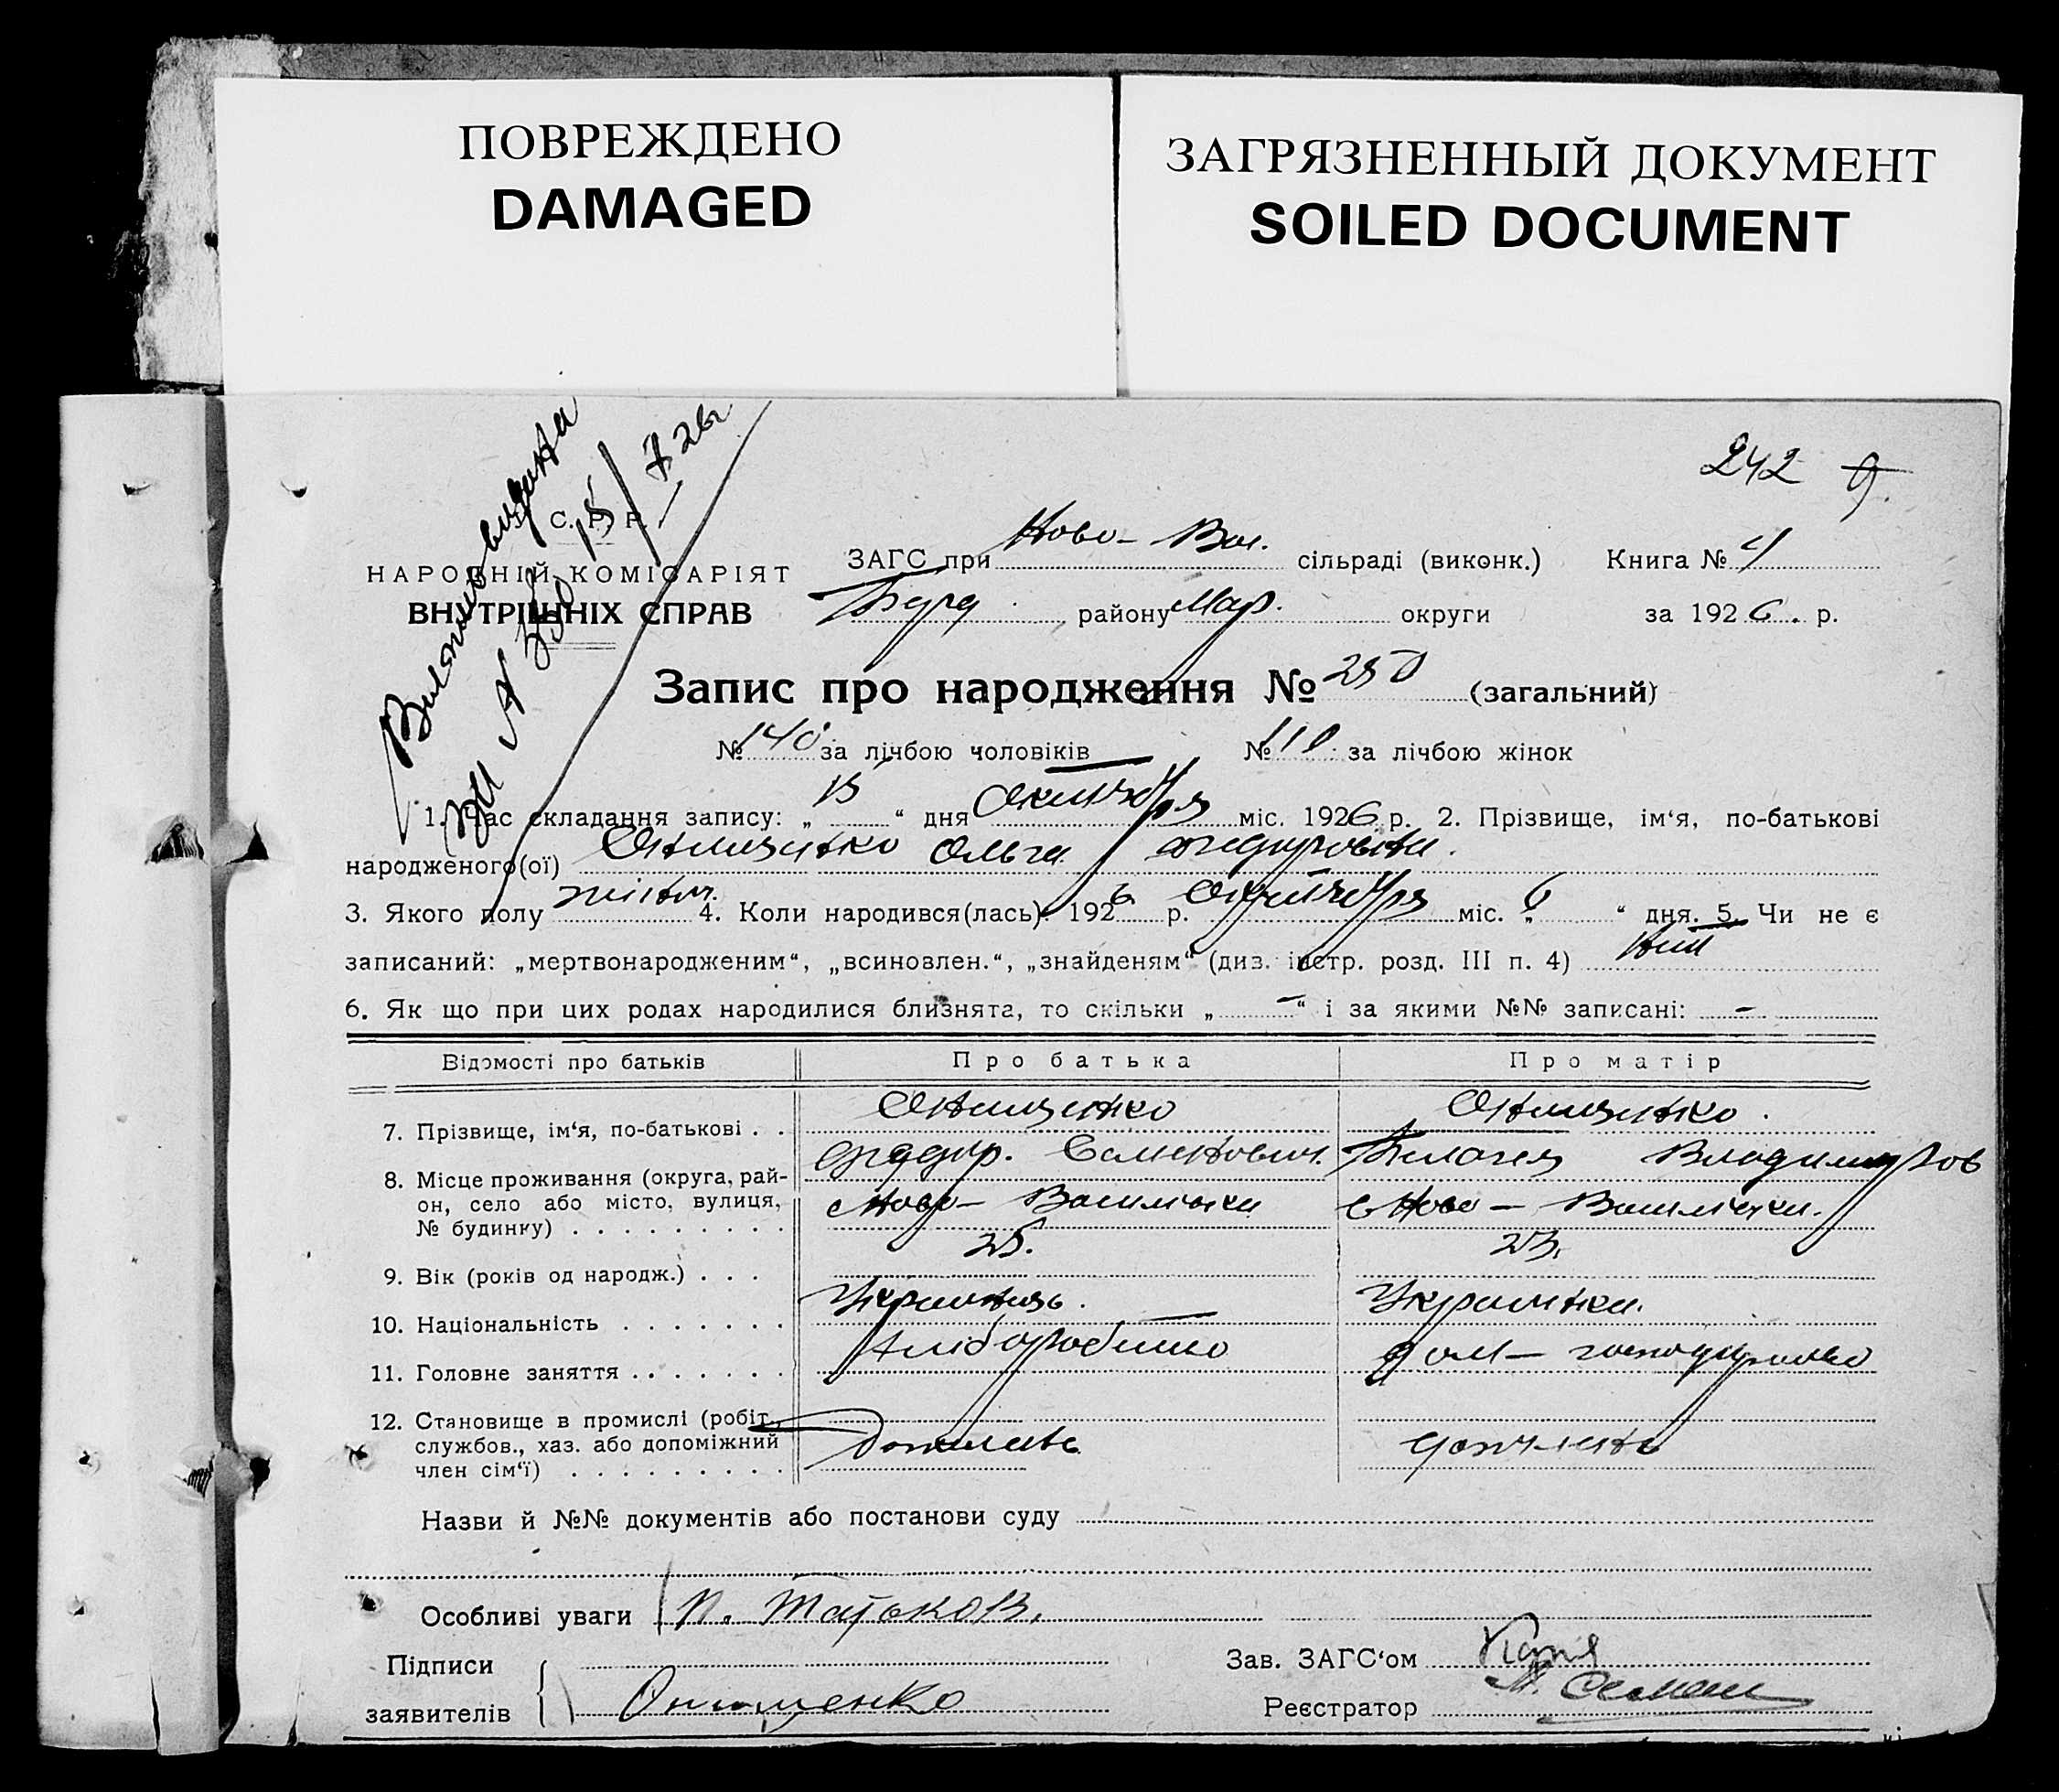 ПОВРЕЖДЕНО
DAMAGED
ЗАГРЯЗНЕННЫЙ ДОКУМЕНТ
SOILED DOCUMENT
242
С. Р. Р.
НАРОДНІЙ КОМІСАРІЯТ
ВНУТРІШНІХ СПРАВ
ЗАГС при Ново-Вас. сільраді (виконк.) Книга № 4
району Мар. округи за 1926. р.
Запис про народження № 250 (загальний)
№ 140 за лічбою чоловіків № 110 за лічбою жінок
1. Час складання запису: „ 15 “ дня Октября міс. 1926 р. 2. Прізвище, ім‘я, по-батькові
народженого(ої) Онищенко Ольга Федоровна.
3. Якого полу жіноч. 4. Коли народився(лась): 1926 р. Октября міс. „ 6 “ дня. 5. Чи не є
записаний: „мертвонародженим“, „всиновлен.“, „знайденям“ (див. інстр. розд. III п. 4) Ні
6. Як що при цих родах народилися близнята, то скільки „ - “ і за якими №№ записані: -
Відомості про батьків Про батька Про матір
7. Прізвище, ім‘я, по-батькові . . Онищенко Онищенко.
Федор. Семенович. Пелагея Владимиров
8. Місце проживання (округа, рай-
он, село або місто, вулиця,
№ будинку) Ново-Васильевки Ново-Васильевки.
9. Вік (років од народж.) . . . 25. 23.
10. Національність Українець. Українка.
11. Головне заняття Хліборобство дом-господарство
12. Становище в промислі (робіт.,
службов., хаз. або допоміжний
член сім‘ї)
Назви й №№ документів або постанови суду
Особливі уваги
Підписи
заявителів Онищенко
Зав. ЗАГС‘ом
Реєстратор